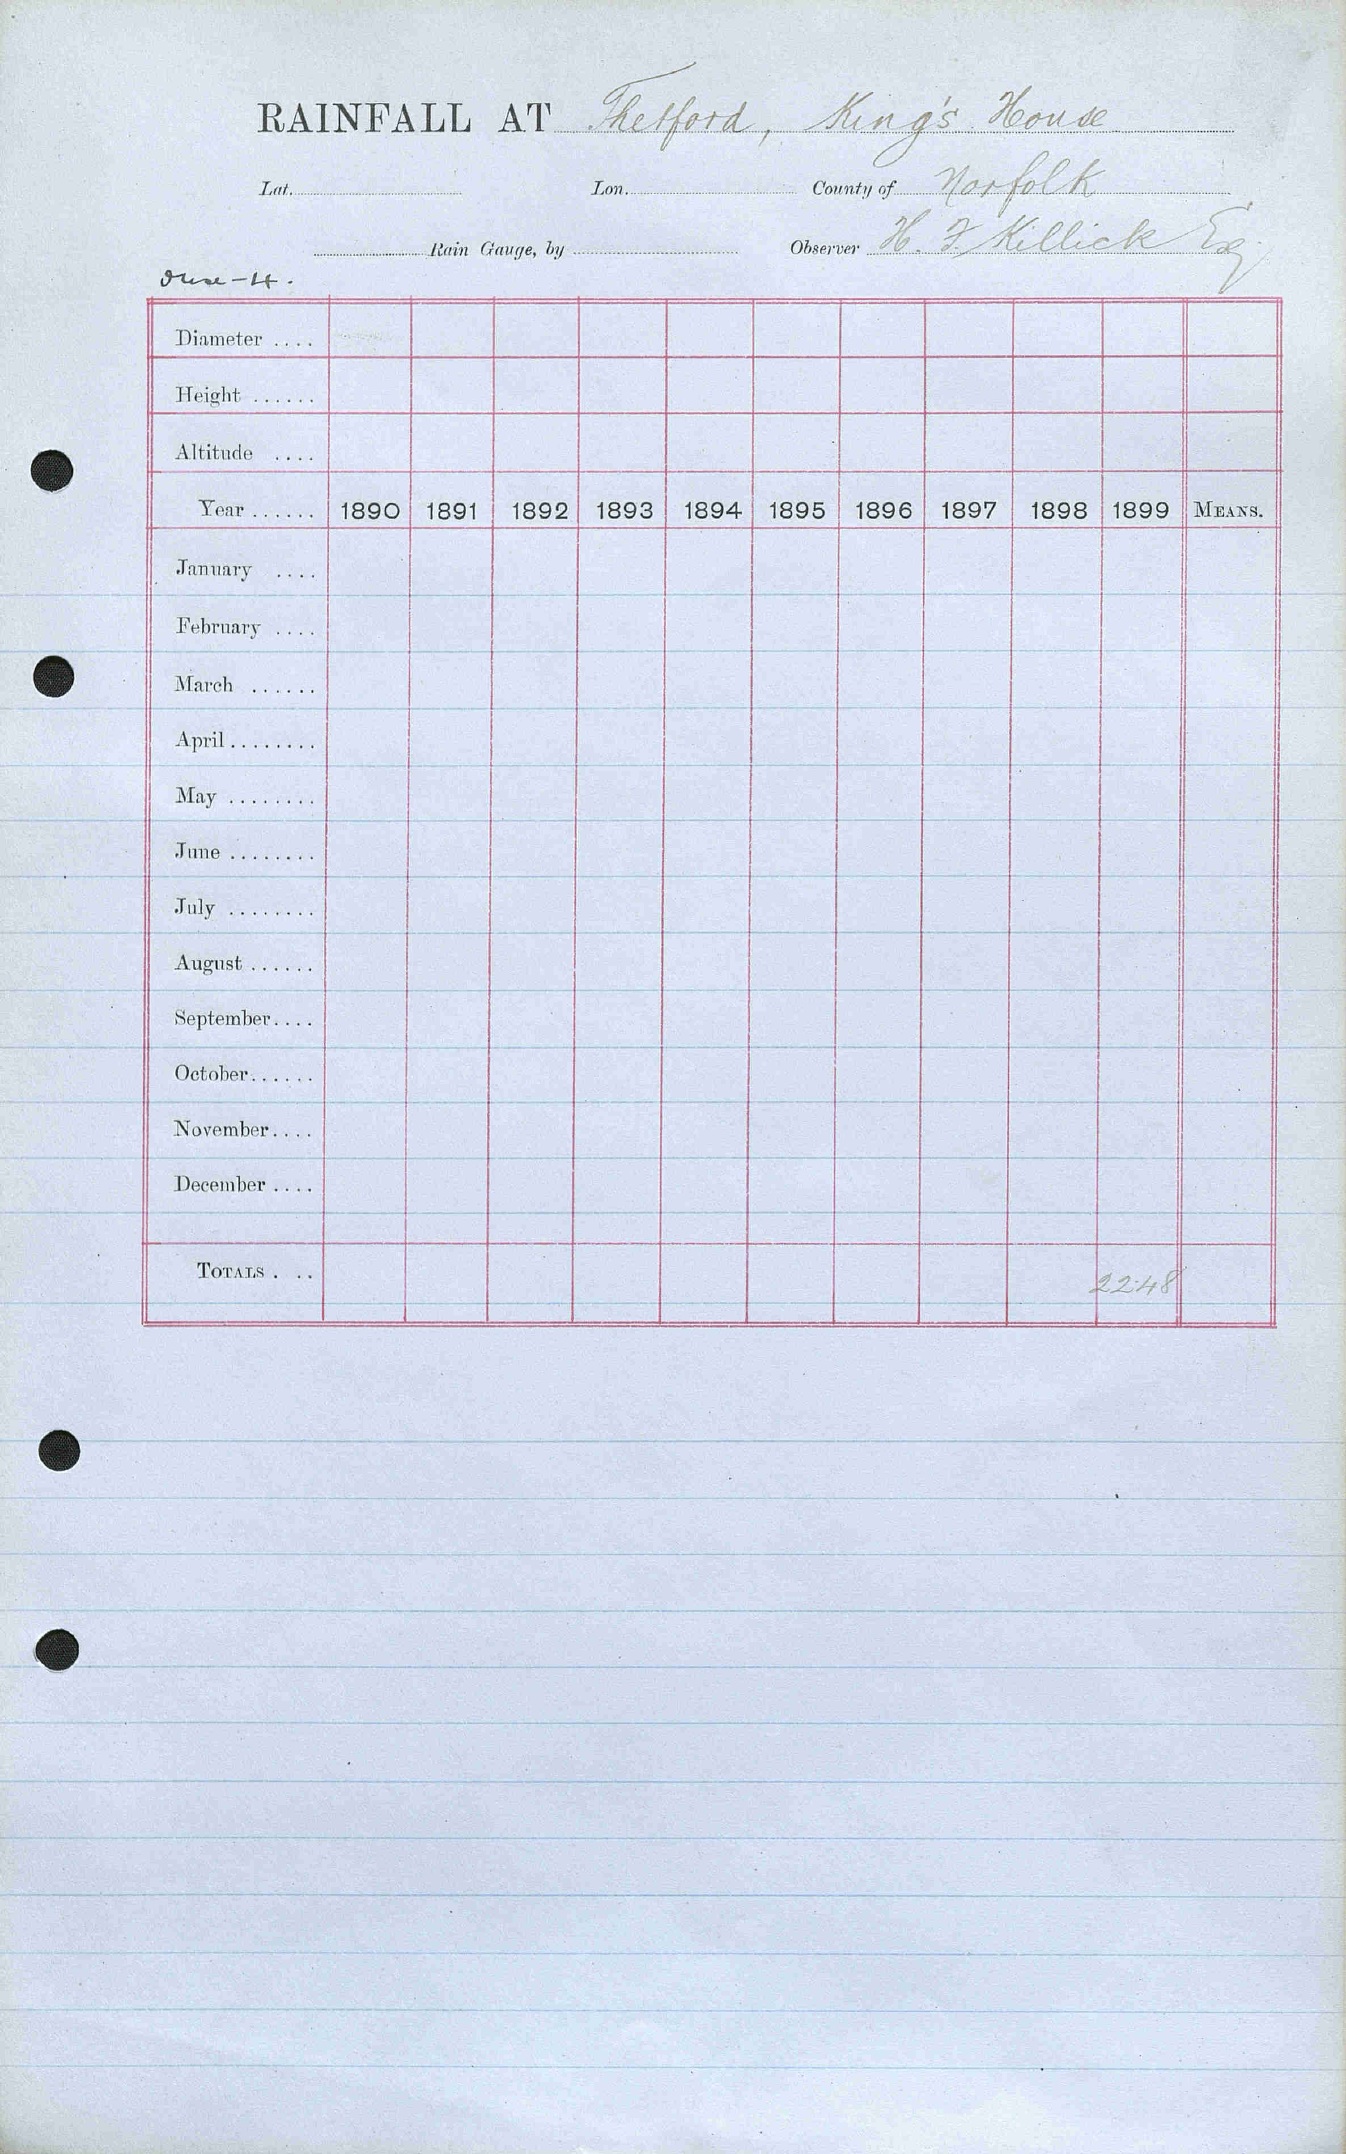 RAINFALL AT Thetford, King's House
Lat. Lon. County of Norfolk
Rain Gauge, by Observer H. F. Killick Esq
Ouse - 4.
Diameter ....
Height ......
Altitude ....
Year ...... 1890 1891 1892 1893 1894 1895 1896 1897 1898 1899 MEANS.
January ....
February ....
March ......
April ........
May ........
June ........
July ........
August ......
September....
October......
November....
December ....
TOTALS . .. 22.48